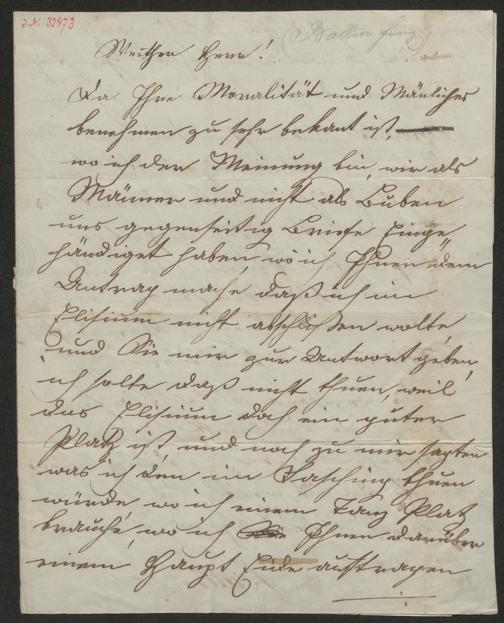 J.N. 32473
Werther Herr!
Da Ihre Moralität und Mänliches
benehmen zu sehr bekant ist,
wo ich der Meinung bin, wir als
Männer und nicht als Buben
uns gegenseitig Briefe Einge„
händiget haben, wo ich Ihnen dem
Antrag mache daß ich im
Elisium nicht abschlüßen wolte
und Sie mir zur Antwort geben,
ich solte daß nicht thuen, weil
das Elisium doch ein guter
Platz ist und noch zu mir sagten
was ich den im Fasching thuen
würde, wo ich einem Tanz Platz
brauche, wo ich Ihnen darüber
einem Haupt Eide auftragen